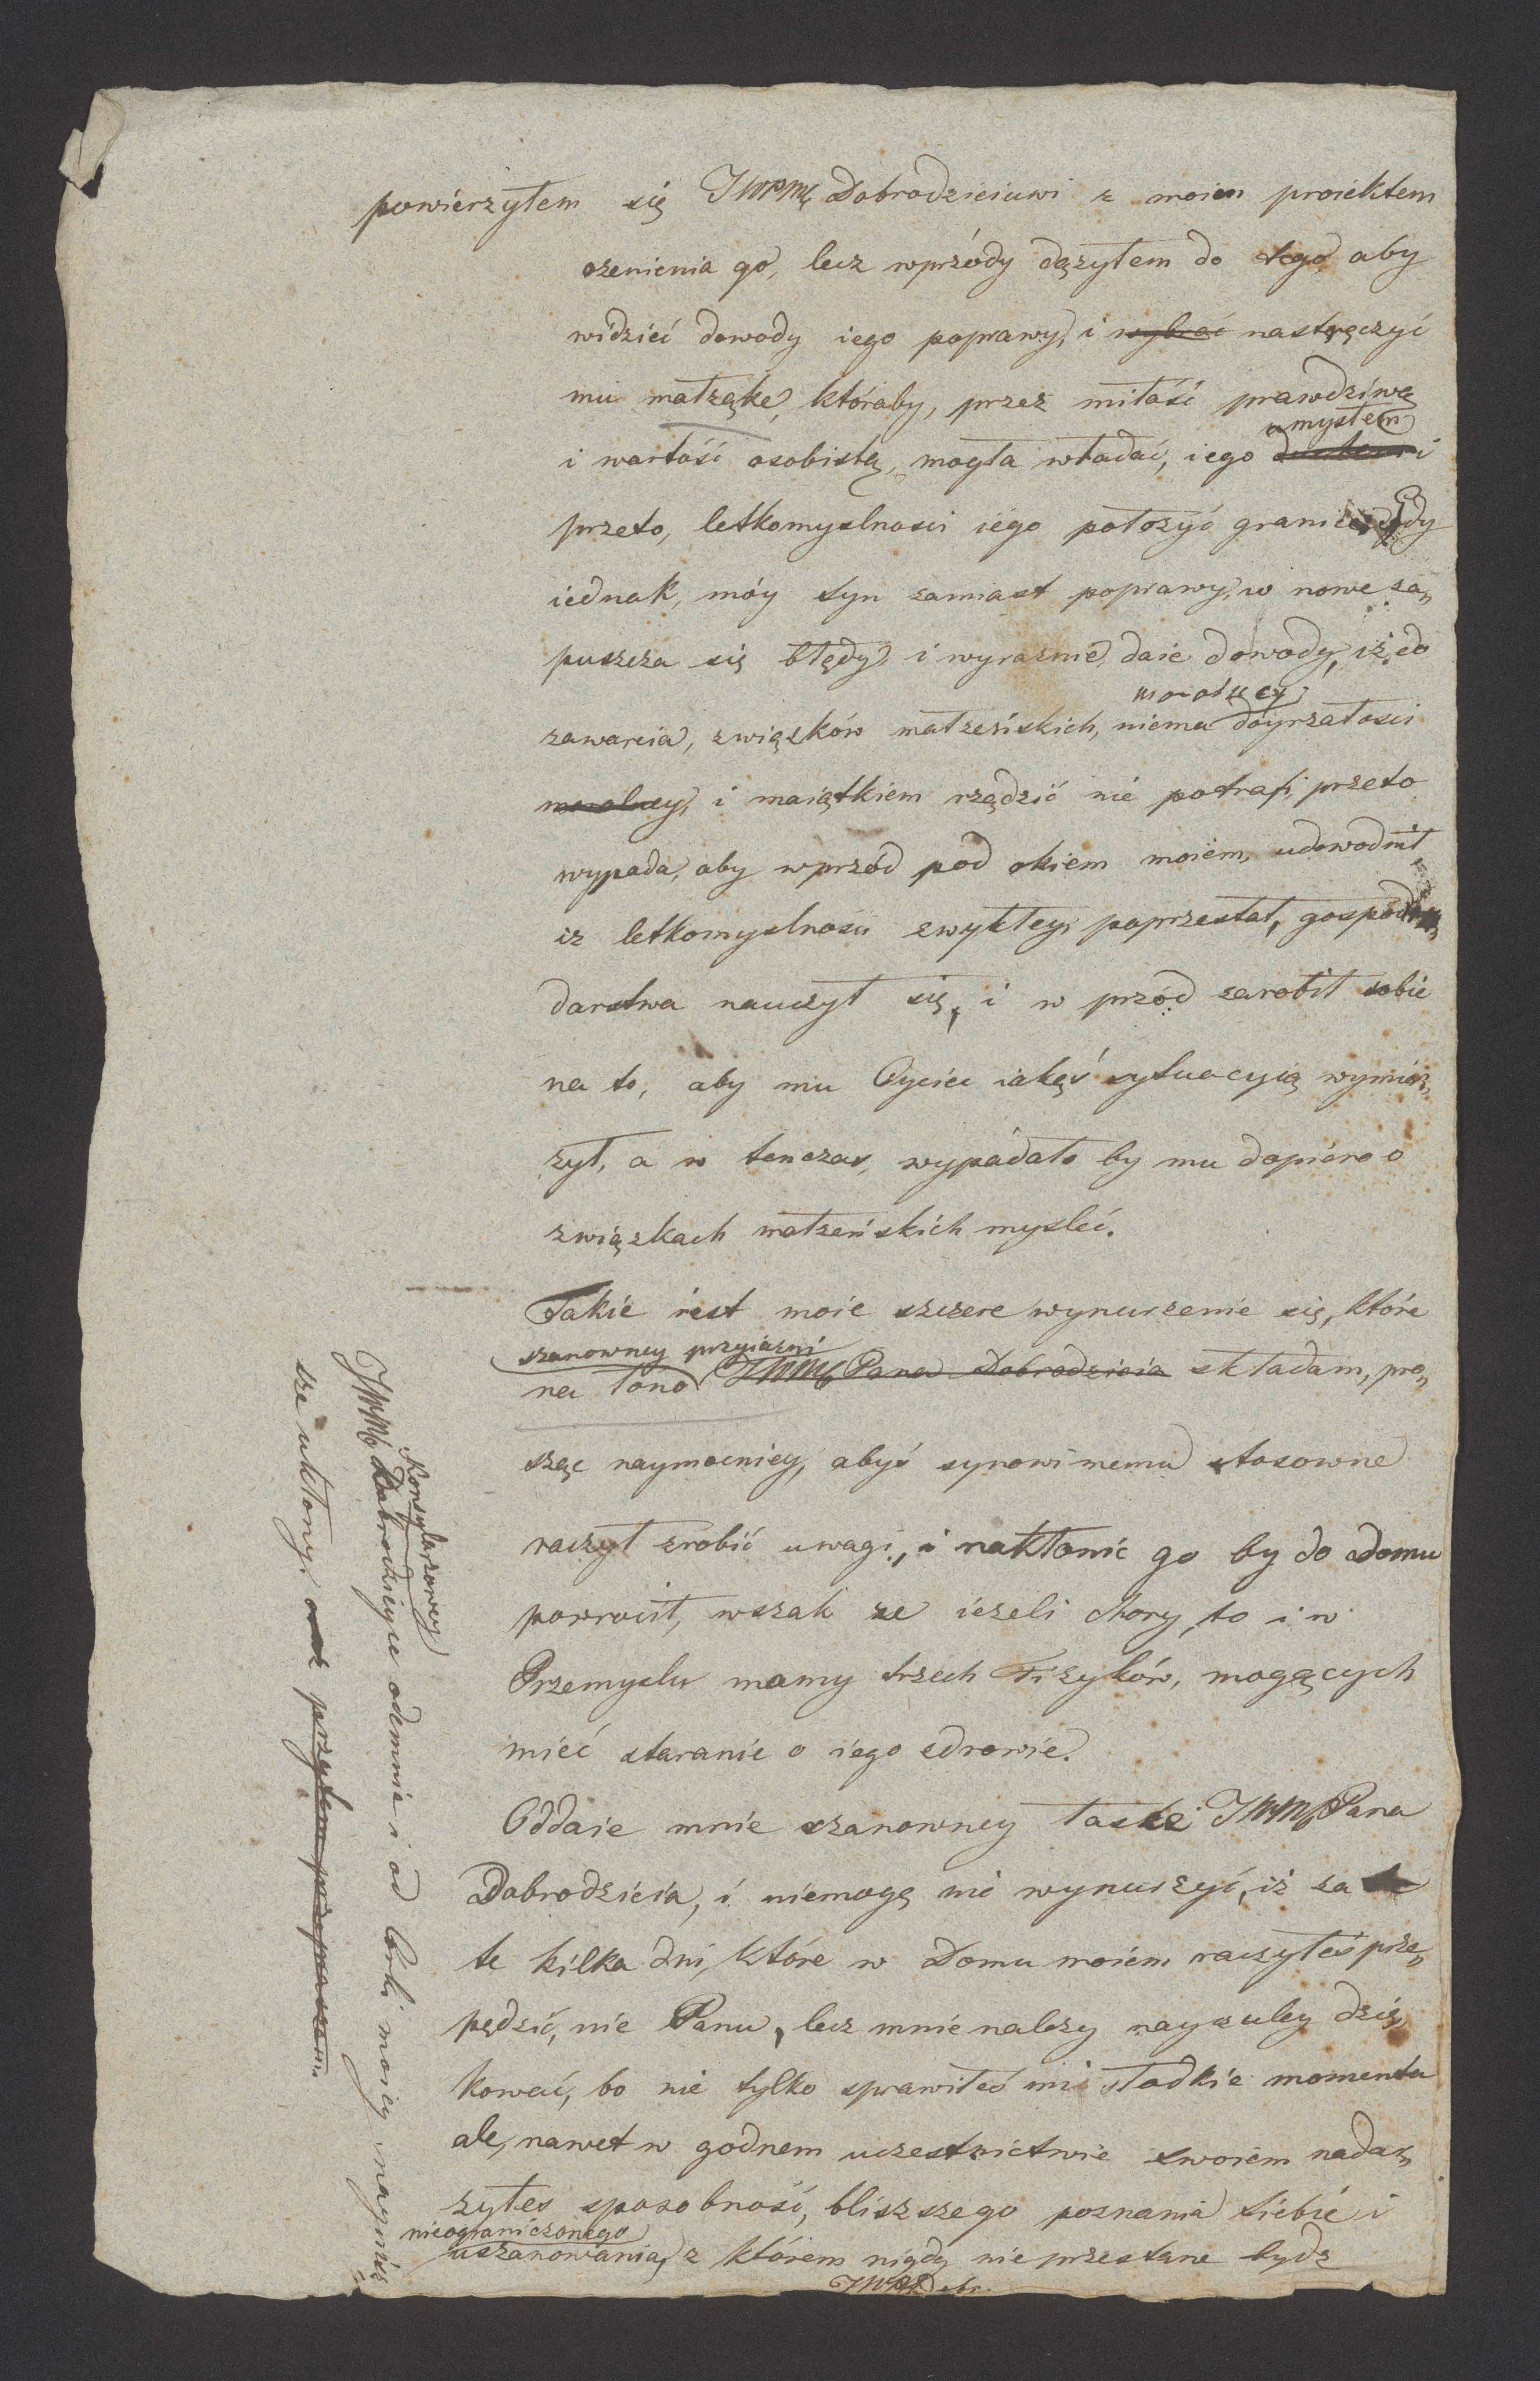 powierzyłem się JWPMę Dobrodzieiowi z moiem proiektem
ożenienia go, lecz wprzódy dążyłem do tego aby
widzieć dowody iego poprawy, i wybrać nastręczyć
mu małżąkę, któraby, przez miłość prawdziwą
umysłem
i wartość osobistą, mogła władać, iego duchem i
przeto, letkomyslnosci iego położyć granice, Gdy
iednak, móy syn zamiast poprawy, w nowe za„
puszcza się błędy i wyraznie daie dowody, iż do
moralney
zawarcia, związków małżeńskich, niema doyrzałosci
moralney, i maiątkiem rządzić nie potrafi, przeto
wypada, aby wprzód pod okiem moiem, udowodnił,
iz letkomyslnosci zwykłey, poprzestał, gospo
darstwa nauczył się, i w przód zarobił sobie
na to, aby mu Oyciec iakąś sytuacyią wymie„
rzył, a w tenczas, wypadało by mu dopióro o
związkach małżeńskich mysleć.
Takie iest moie szczere wynurzenie się, które
szanowney przyiazni
na łono JWMG Pana Dobrodzieia składam, pro„
sząc naymocniey, abyś synowi memu stosowne
raczył zrobić uwagi, i nakłonić go by do domu
powrocił, wszak ze ieżeli chory, to i w
Przemyslu mamy trzech Fizyków, mogących
mieć staranie o iego zdrowie.
Oddaie mnie szanowney łasce JWMG Pana
Dobrodzieia, i niemogę nie wynurzyć, iż za
te kilka dni, które w Domu moiem raczyłeś prze„
pędzić, nie Panu, lecz mnie nalezy nayczuley dzię„
kować, bo nie tylko sprawiłeś mi słodkie momenta
ale, nawet w godnem uczestnictwie swoiem nada„
rzyłes sposobność, bliższego poznania siebie i
nieograniczonego
uszanowania, z którem nigdy nie przestane bydz
JWPP Dobr.
Konsyliarzowey
JWMG Dobrodzieyce odemnie i od Corki moiey nayniż
sze ukłony, oraz przytem przepraszam.